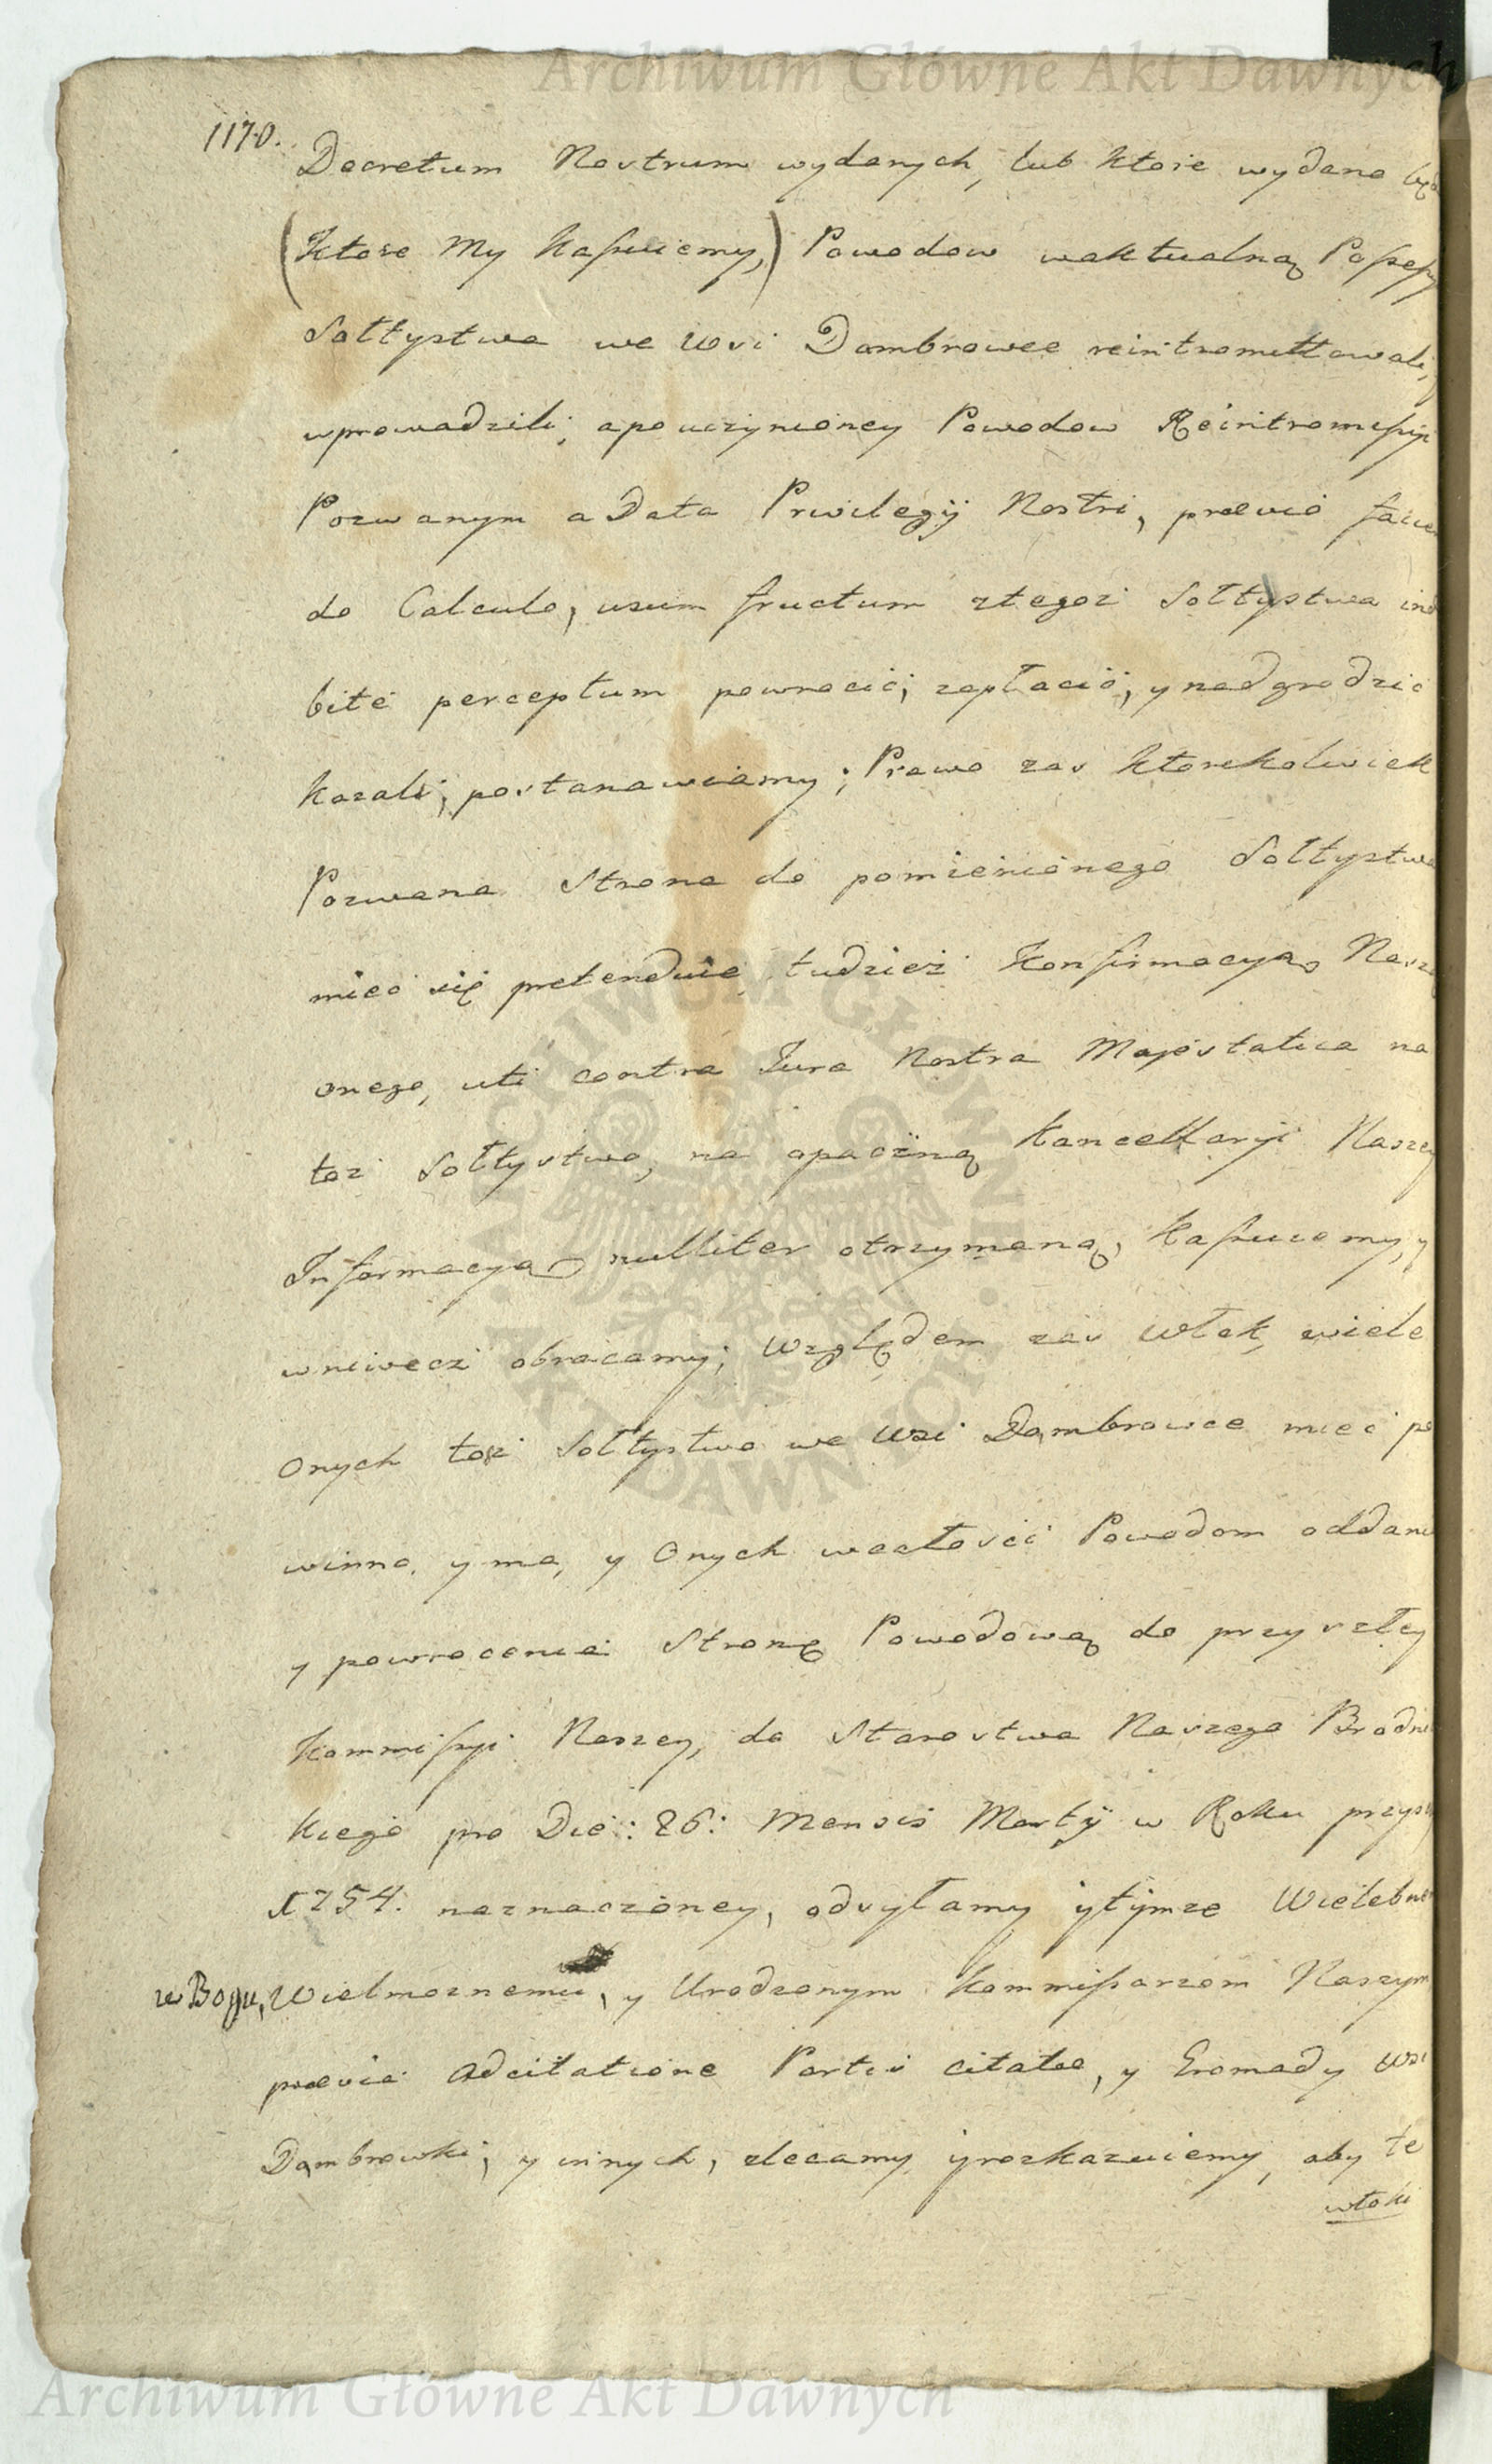 Archiwum Główne Akt Dawnych
1170.
Decretum Nostrum wydanych, lub ktore wydane bę
(ktore My kaſsuiemy,) Powodow waktualną Poſseſsy
Sołtystwa we Wsi Dombrowce reintromittowali,
wprowadzili, apo uczynioney Powodow Reintromiſsyi
Pozwanym a Data Privilegij Nostri, prævio facien
do Calculo, usum fructum ztegoż Sołtystwa inde
bite perceptum powrocić, zapłacić, y nadgrodzić
kazali, postanawiamy; Prawo zas ktorekolwiek
Pozwana Strona do pomienionego Sołtystwa
mieć się pretenduie, tudzież Konfirmacyą Nasz
onego, uti contra Iura Nostra Majestatica na
toż Sołtystwo, na opaczną Kancellaryi Naszey
Informacyą nulliter otrzymaną, kaſsuiemy, y
wniwecz obracamy; Względem zas Włok, wiele
Onych toż Sołtystwo we Wsi Dambrowce mieć po
winno, y ma, y Onych wcałości Powodom oddani
y powrocenia Stronę Powodową do przyszłey
Kommiſsyi Naszey, do Starostwa Naszego Brodni
kiego pro Die: 26: Mensis Martij w Roku przysz
1754. naznaczoney, odsyłamy, ytymże Wielebne
w Bogu, Wielmoznemu, y Urodzonym Kommiſsarzom Naszym
prævia adcitatione Partis citatæ, y Gromady Wsi
Dambrowki, y innych, zlecamy, yrozkazuiemy, aby te
włoki
ARCHIWUM GŁÓWNE AKT DAWNYCH
Archiwum Główne Akt Dawnych